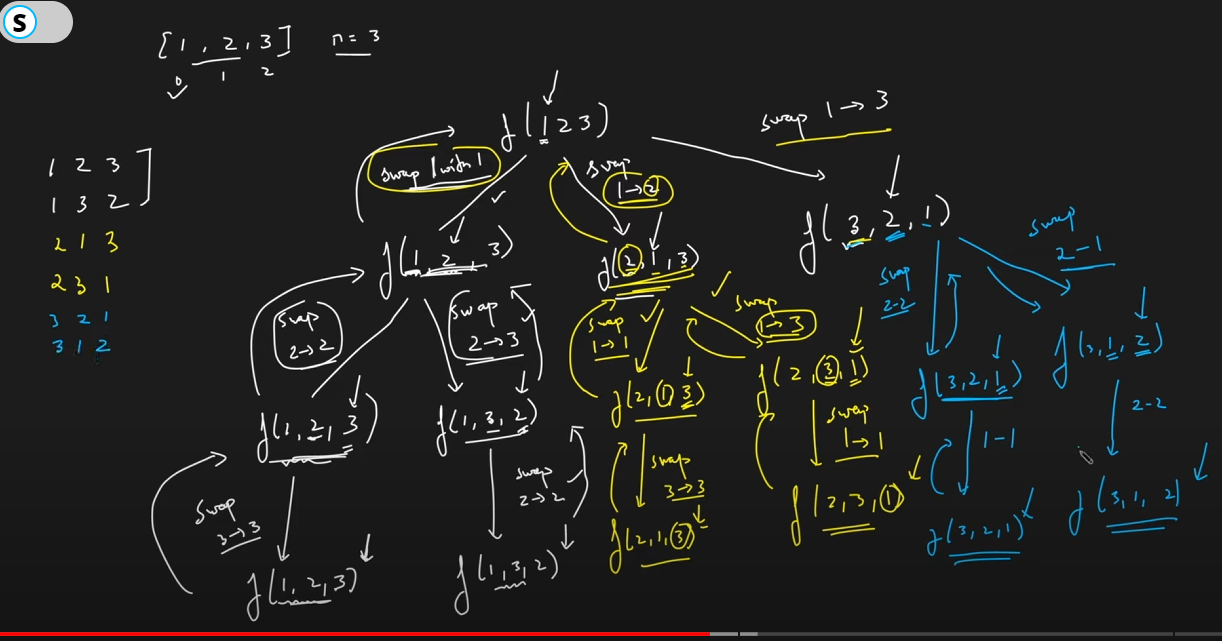 S
[1, 2, 3] n = 3
0 1 2
f(1 2 3)
swap 1 → 3
1 2 3
1 3 2
2 1 3
2 3 1
3 2 1
3 1 2
swap 1 with 1
swap
1 → 2
f(1, 2, 3)
f(2, 1, 3)
f(3, 2, 1)
swap
2 → 2
swap
2 → 3
swap
1 → 1
swap
1 → 3
swap
2-2
swap
2 - 1
f(1, 2, 3)
f(1, 3, 2)
f(2, 1, 3)
f(2, 3, 1)
f(3, 2, 1)
f(3, 1, 2)
swap
3 → 3
swap
2 → 2
swap
3 → 3
swap
1 → 1
1 - 1
2 - 2
f(1, 2, 3)
f(1, 3, 2)
f(2, 1, 3)
f(2, 3, 1)
f(3, 2, 1)
f(3, 1, 2)